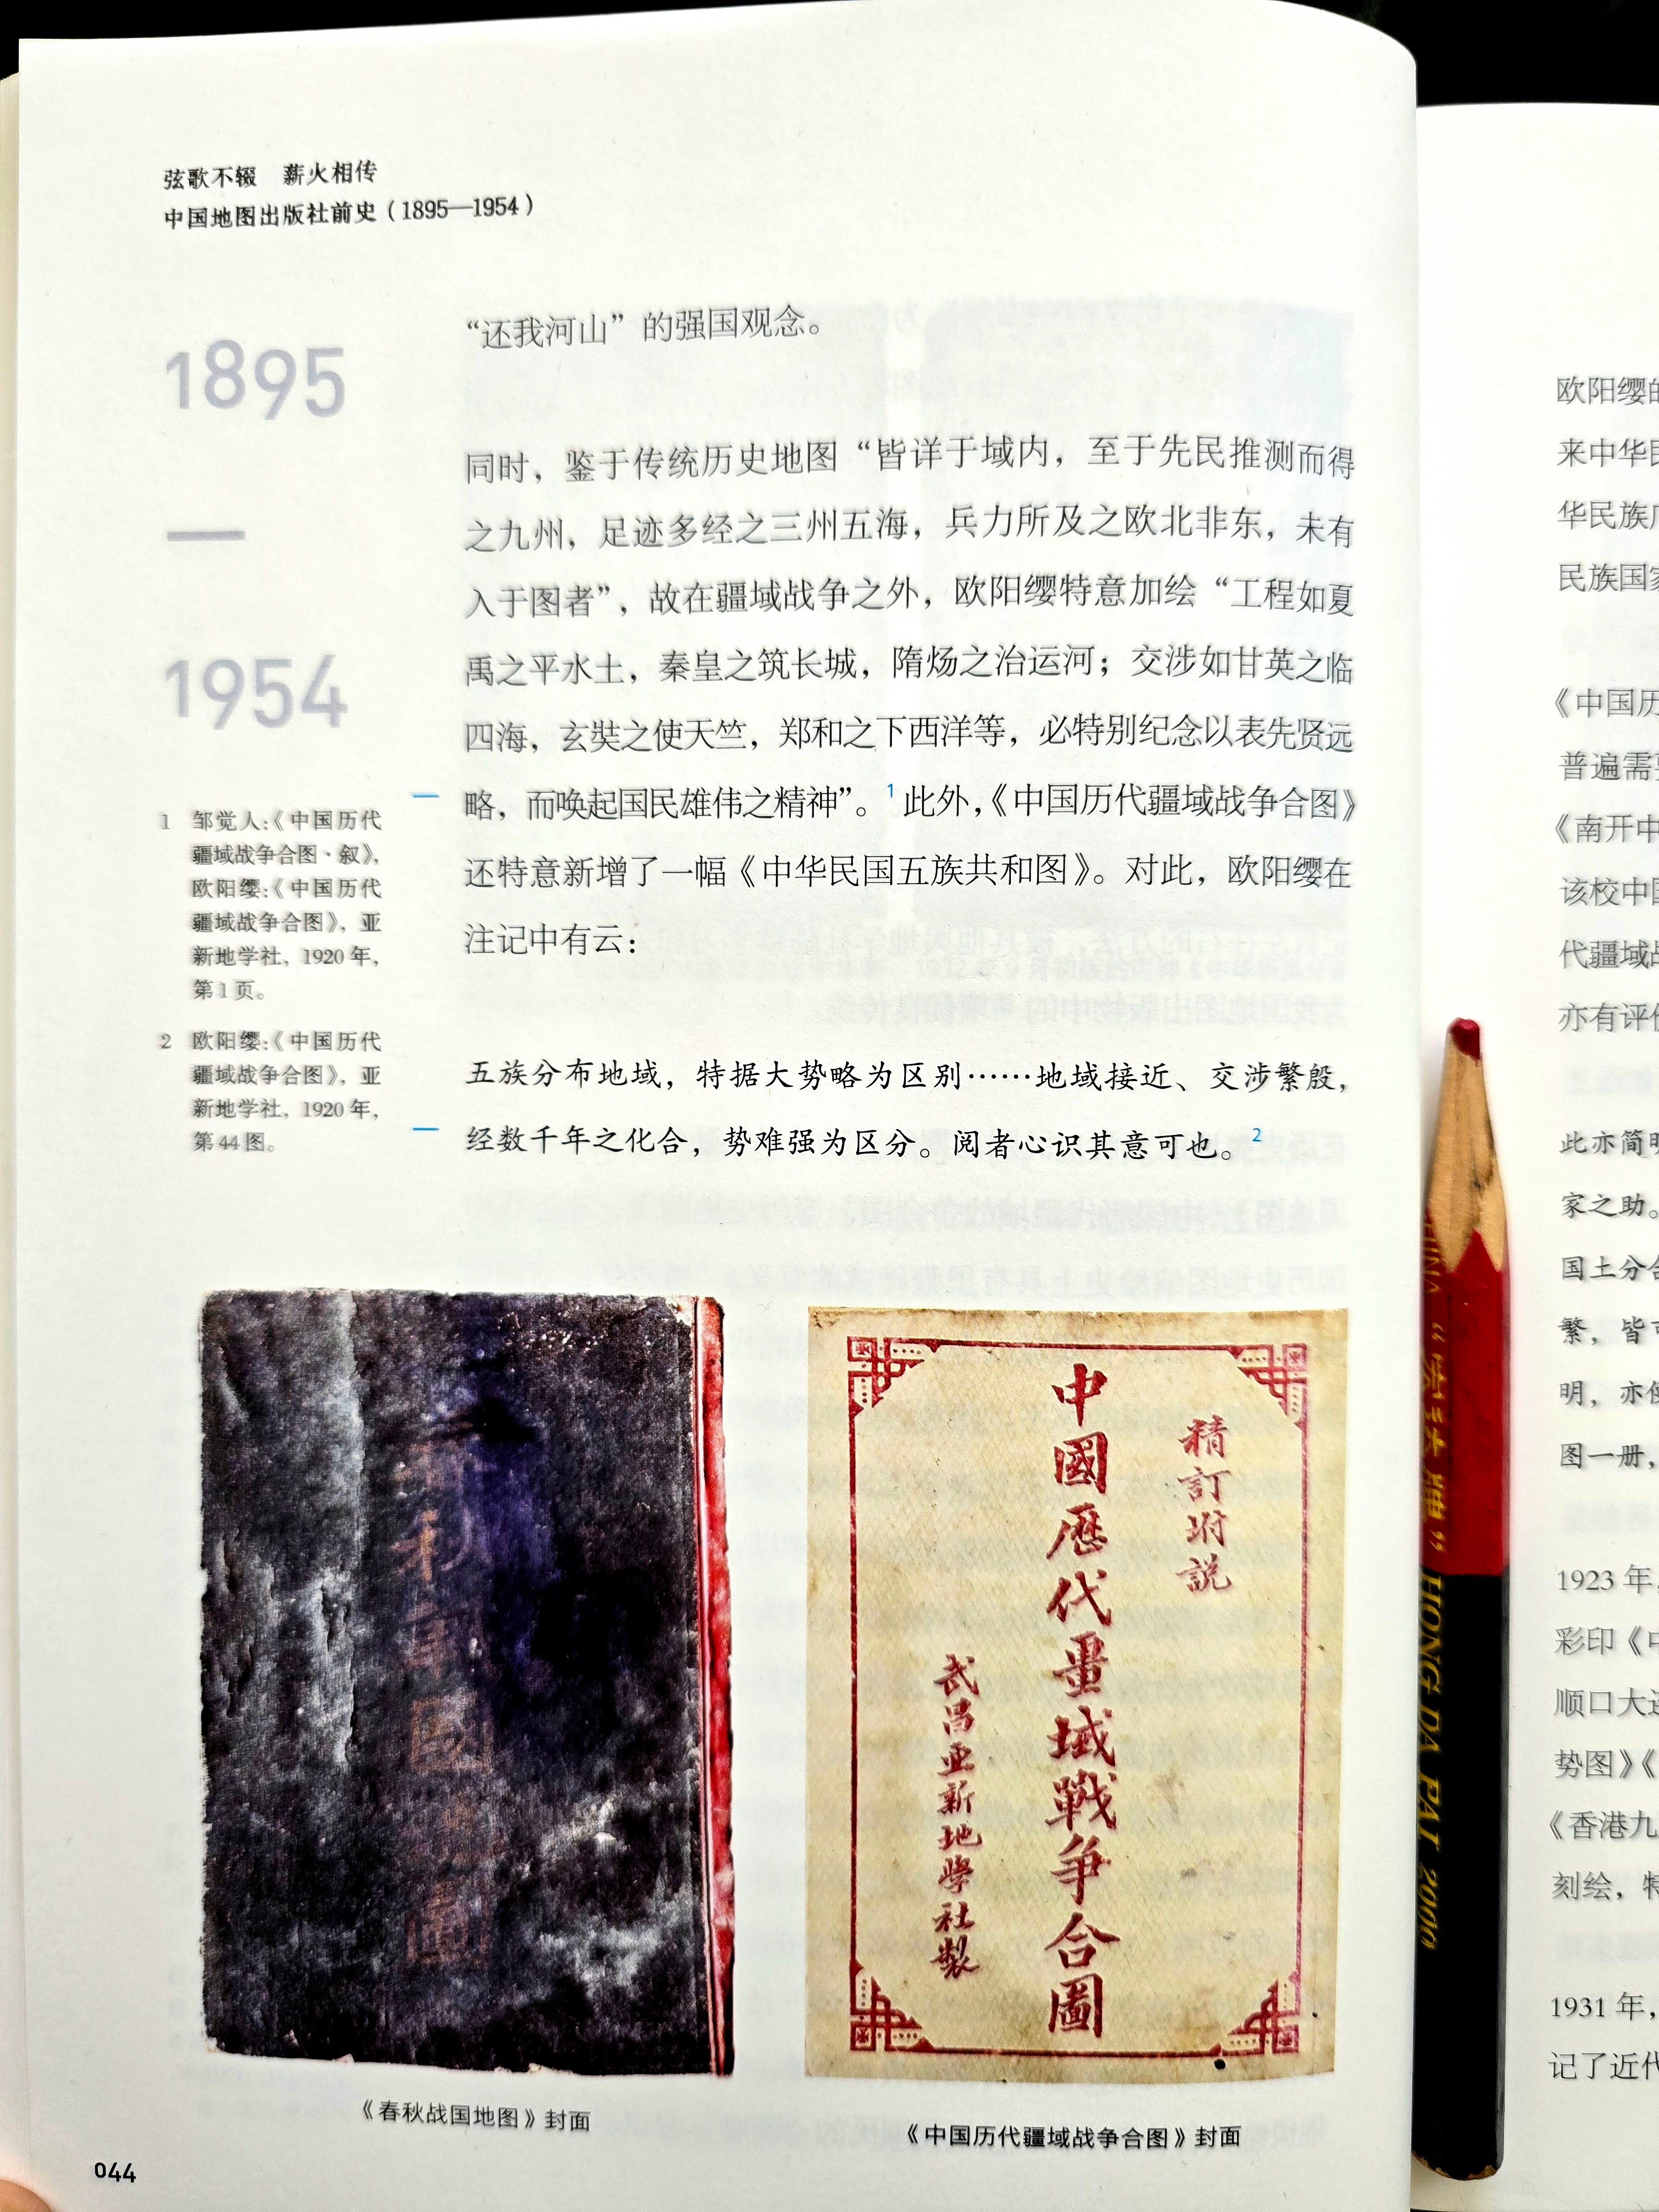 弦歌不辍　薪火相传
中国地图出版社前史（1895—1954）
1895
—
1954
“还我河山”的强国观念。
同时，鉴于传统历史地图“皆详于域内，至于先民推测而得
之九州，足迹多经之三州五海，兵力所及之欧北非东，未有
入于图者”，故在疆域战争之外，欧阳缨特意加绘“工程如夏
禹之平水土，秦皇之筑长城，隋炀之治运河；交涉如甘英之临
四海，玄奘之使天竺，郑和之下西洋等，必特别纪念以表先贤远
略，而唤起国民雄伟之精神”。1 此外，《中国历代疆域战争合图》
还特意新增了一幅《中华民国五族共和图》。对此，欧阳缨在
注记中有云：
五族分布地域，特据大势略为区别……地域接近、交涉繁殷，
经数千年之化合，势难强为区分。阅者心识其意可也。2
1 邹觉人:《中国历代
疆域战争合图·叙》，
欧阳缨:《中国历代
疆域战争合图》，亚
新地学社，1920 年，
第 1 页。
2 欧阳缨:《中国历代
疆域战争合图》，亚
新地学社，1920 年，
第 44 图。
秋
國
圖
精訂坿説
中國歷代畺域戰争合圖
武昌亚新地學社製
《春秋战国地图》封面
《中国历代疆域战争合图》封面
044
欧阳缨的
来中华民
华民族
民族国家
《中国历
普遍需要
《南开中
该校中国
代疆域战
亦有评价
此亦简明
家之助。
国土分合
繁，皆可
明，亦使
图一册，
1923 年，
彩印《中
顺口大连
势图》《
《香港九
刻绘，特
1931 年，
记了近代
CHINA “宏达牌” HONG DA PAI 2000